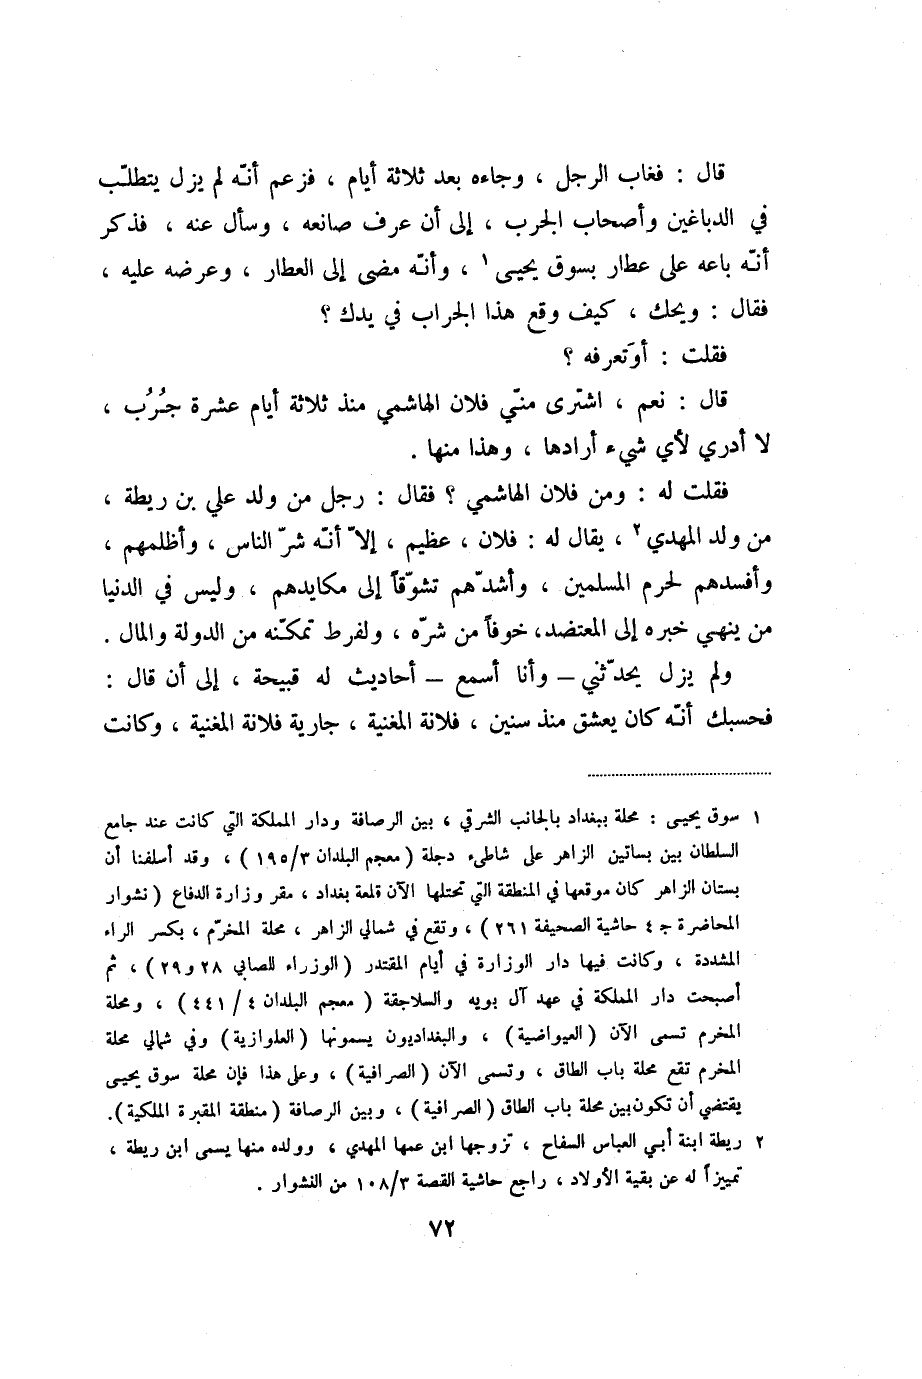 قال : فغاب الرجل ، وجاءه بعد ثلاثة أيام ، فزعم أنّه لم يزل يتطلّب
في الدباغين وأصحاب الجرب ، إلى أن عرف صانعه ، وسأل عنه ، فذكر
أنّه باعه على عطار بسوق يحيى ١ ، وأنّه مضى إلى العطار ، وعرضه عليه ،
فقال : ويحك ، كيف وقع هذا الجراب في يدك ؟
فقلت : أوَتعرفه ؟
قال : نعم ، اشترى منّي فلان الهاشمي منذ ثلاثة أيام عشرة جُرُب ،
لا أدري لأي شيء أرادها ، وهذا منها .
فقلت له : ومن فلان الهاشمي ؟ فقال : رجل من ولد علي بن ريطة ،
من ولد المهدي ٢ ، يقال له : فلان ، عظيم ، إلاّ أنّه شرّ الناس ، وأظلمهم ،
وأفسدهم لحرم المسلمين ، وأشدّهم تشوّقاً إلى مكايدهم ، وليس في الدنيا
من ينهي خبره إلى المعتضد، خوفاً من شرّه ، ولفرط تمكّنه من الدولة والمال .
ولم يزل يحدّثني – وأنا أسمع – أحاديث له قبيحة ، إلى أن قال :
فحسبك أنّه كان يعشق منذ سنين ، فلانة المغنية ، جارية فلانة المغنية ، وكانت
١ سوق يحيى : محلة ببغداد بالجانب الشرقي ، بين الرصافة ودار المملكة التي كانت عند جامع
السلطان بين بساتين الزاهر على شاطىء دجلة (معجم البلدان ١٩٥/٣) ، وقد أسلفنا أن
بستان الزاهر كان موقعها في المنطقة التي تحتلها الآن قلعة بغداد ، مقر وزارة الدفاع (نشوار
المحاضرة ج ٤ حاشية الصحيفة ٢٦١) ، وتقع في شمالي الزاهر ، محلة المخرّم ، بكسر الراء
المشددة ، وكانت فيها دار الوزارة في أيام المقتدر (الوزراء للصابي ٢٨ و ٢٩) ، ثم
أصبحت دار المملكة في عهد آل بويه والسلاجقة (معجم البلدان ٤ / ٤٤١) ، ومحلة
المخرم تسمى الآن (العيواضية) ، والبغداديون يسمونها (العلوازية) وفي شمالي محلة
المخرم تقع محلة باب الطاق ، وتسمى الآن (الصرافية) ، وعلى هذا فإن محلة سوق يحيى
يقتضي أن تكون بين محلة باب الطاق (الصرافية) ، وبين الرصافة (منطقة المقبرة الملكية).
٢ ريطة ابنة أبي العباس السفاح ، تزوجها ابن عمها المهدي ، وولده منها يسمى ابن ريطة ،
تمييزاً له عن بقية الأولاد ، راجع حاشية القصة ١٠٨/٣ من النشوار .
٧٢